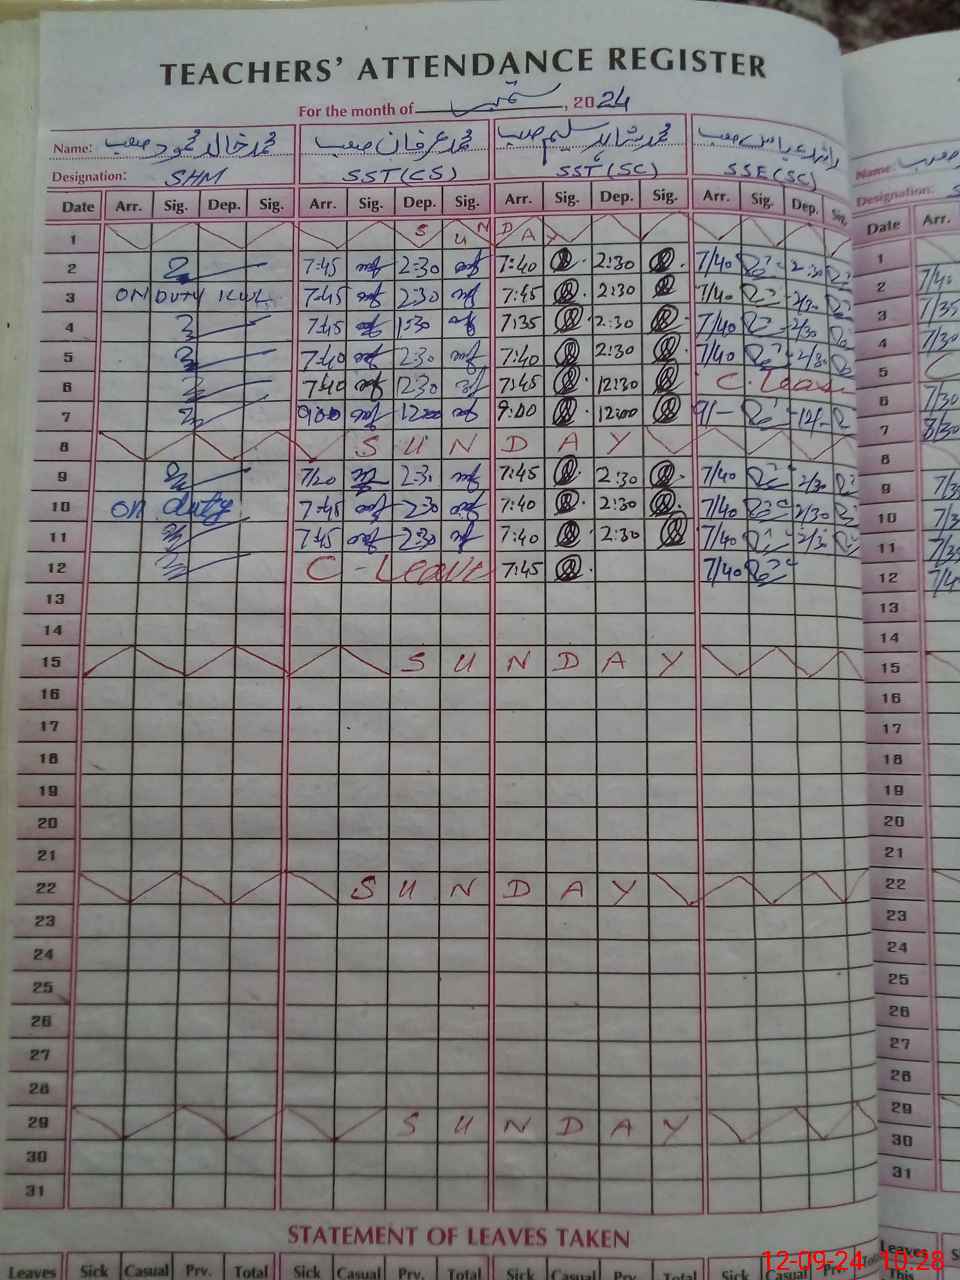 TEACHERS' ATTENDANCE REGISTER
For the month of ستمبر, 2024
Name: محمد خالد محمود صاحب محمد عرفان صاحب محمد شاہد سلیم صاحب راشد عباس صاحب
Designation: SHM SST (CS) SST (SC) SSE (SC)
Date Arr. Sig. Dep. Sig. Arr. Sig. Dep. Sig. Arr. Sig. Dep. Sig. Arr. Sig. Dep. Sig.
1 SUNDAY
2 7:45 2:30 7:40 2:30 7/40 2:30
3 ON DUTY 7:45 2:30 7:45 2:30 7/40 2/30
4 7:45 1:30 7:35 2:30 7/40 2/30
5 7:40 2:30 7:40 2:30 7/40 2/30
6 7:40 12:30 7:45 12:30 C. Leave
7 900 1200 9:00 12:00 9/- 12/-
8 SUNDAY
9 7/20 2:30 7:45 2:30 7/40 2/30
10 on duty 7:45 2:30 7:40 2:30 7/40 2/30
11 7:45 2:30 7:40 2:30 7/40 2/30
12 C-Leave 7:45 7/40
13
14
15 SUNDAY
16
17
18
19
20
21
22 SUNDAY
23
24
25
26
27
28
29 SUNDAY
30
31
STATEMENT OF LEAVES TAKEN
Leaves Sick Casual Prv. Total Sick Casual Prv. Total Sick Casual Prv. Total Sick Casual Prv. Total
Name:
Designation:
Date Arr.
1
2 7/40
3 7/35
4 7/30
5
6 7/30
7 8/30
8
9
10
11
12
13
14
15
16
17
18
19
20
21
22
23
24
25
26
27
28
29
30
31
Leaves
12-09-24 10:28